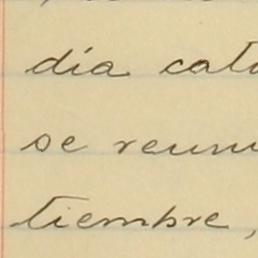 día cato
se reuni
tiembre,